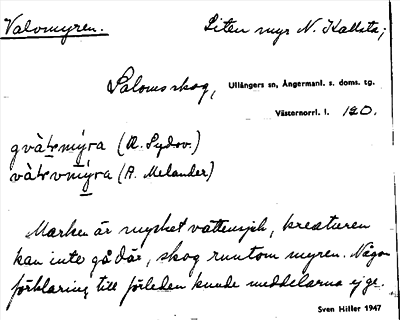 Valvomyren. Liten myr N. Kallsta;
Saloms skog, Ullångers sn, Ångermanl. s. doms. tg.
Västernorrl. l. 120.
(A. Sydov.)
(A. Melander.)
Marken är mycket vattensjuk, kreaturen
kan inte gå där, skog runtom myren. Någon
förklaring till förleden kunde meddelarna ej ge.
Sven Hiller 1947